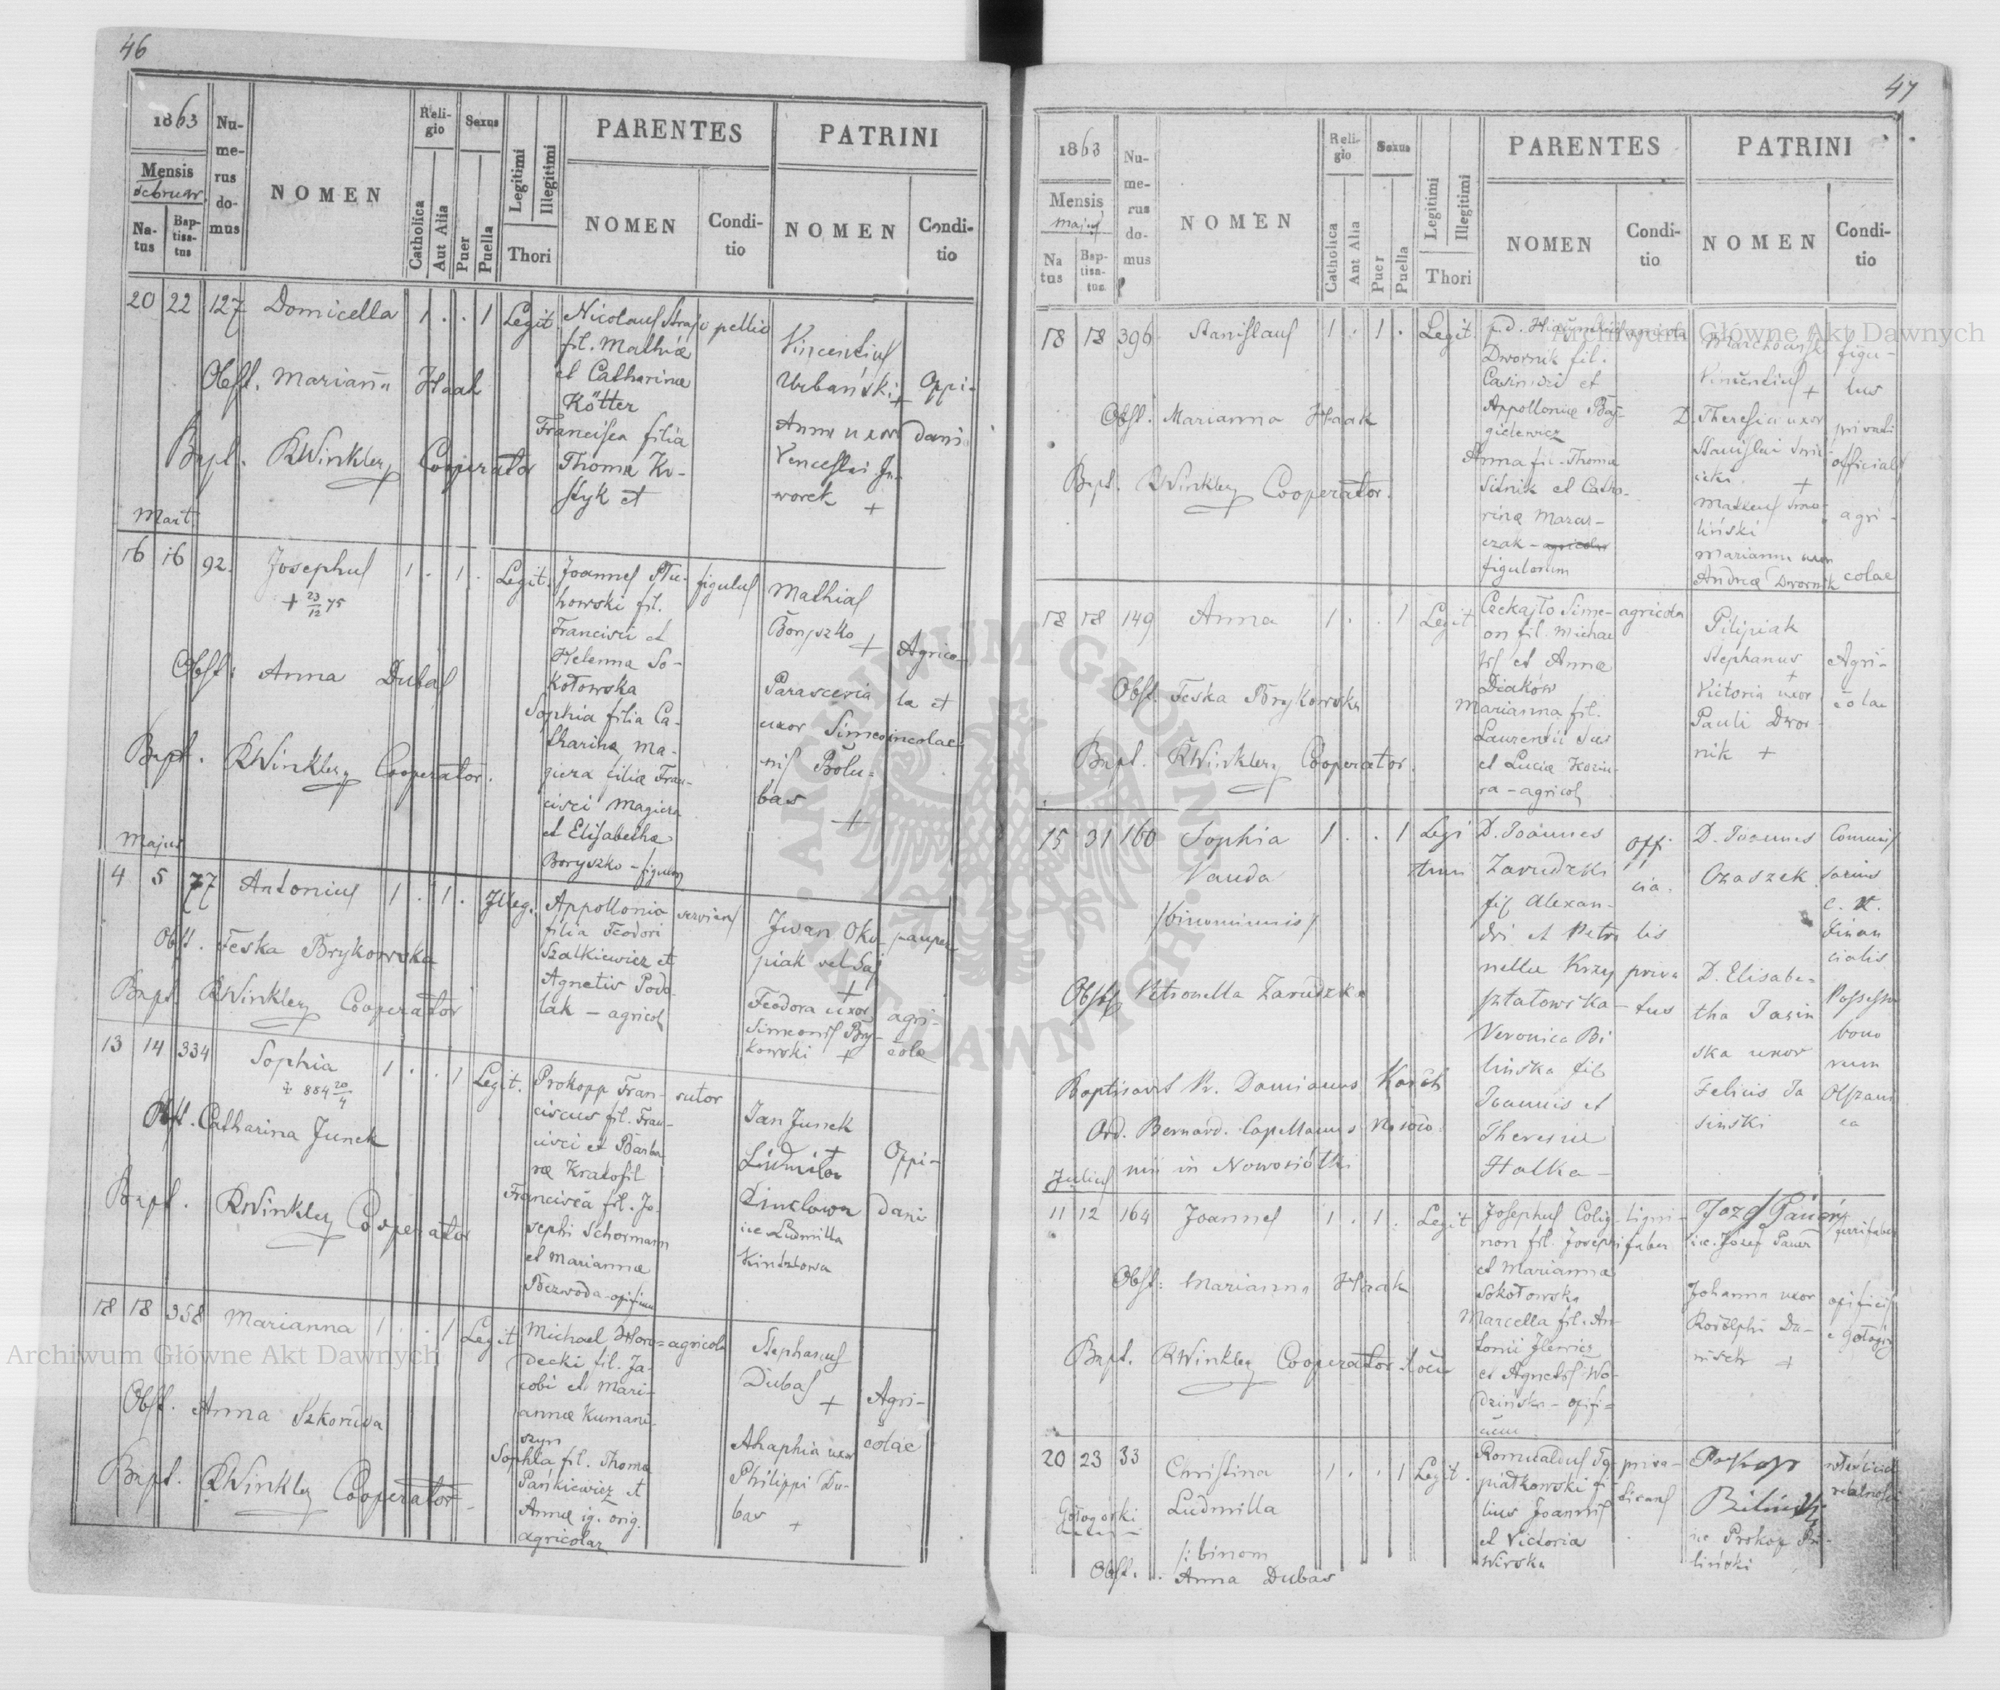 46
1863
Mensis
Februar.
Natus
Baptisatus
Numerus domus
NOMEN
Religio
Catholica
Aut Alia
Sexus
Puer
Puella
Legitimi
Illegitimi
Thori
PARENTES
NOMEN
Conditio
PATRINI
NOMEN
Conditio
20 22 127 Domicella 1 . . 1 Legit
Obst. Marianna Haak
Bapt. RWinkler Cooperator
Nicolaus
fil. Mathiæ
et Catharinæ
Kötter
Francisca filia
Thomæ
et
pellio
Vincentius
Urbański +
Anna uxor
Venceslai
worek +
Oppi-
dani
Mart.
16 16 92. Josephus 1 . 1 . Legit.
+ 23/12 75
Obst: Anna Dubas
Bapt. RWinkler Cooperator.
Joannes
howski fil.
Francisci et
Helenna So-
kołowska
Sophia filia Ca-
tharinæ Ma-
giera filiæ Fran-
cisci Magiera
et Elisabethæ
Boryszko - figulor
figulus
Mathias
Boryszko +
Parascevia
uxor Simeo
nis Bołu-
bas +
Agrico-
la et
Majus
4 5 77 Antonius 1 . 1 . Illeg.
Obst. Feska Brykowska
Bapt RWinkler Cooperator
Appollonia
filia Feodori
Szalkiewicz et
Agnetis Podo-
lak - agricol
serviens
Iwan Oko-
piak vel
+
Feodora uxor
Simeonis Bry-
kowski +
agri-
colæ
13 14 334 Sophia 1 . . 1 Legit.
+ 884 20/4
Obst. Catharina Junek
Bapt. RWinkler Cooperator
Prokopp Fran-
ciscus fil. Fran-
cisci et Barba-
ræ Kratofil
Francisca fil. Jo-
sephi Schormann
et Mariannæ
Bezwoda - opificum
sutor
Jan Junek
+
Ludmila
Kinclowa
ie Ludmilla
Kintzlowa
Oppi-
dani
18 18 358 Marianna 1 . . 1 Legit
Obst. Anna Szkoruda
Bapt. RWinkler Cooperator
Michael Horo-
decki fil. Ja-
cobi et Mari-
annæ Kumani-
szyn
Sophia fil. Thomæ
Pańkiewicz et
Annæ ig. orig.
agricolar
agricola
Stephanus
Dubas +
Ahaphia uxor
Philippi Du-
bas +
Agri-
colae
47
1863
Mensis
Majus
Natus
Baptisatus
Numerus domus
NOMEN
Religio
Catholica
Aut Alia
Sexus
Puer
Puella
Legitimi
Illegitimi
Thori
PARENTES
NOMEN
Conditio
PATRINI
NOMEN
Conditio
18 18 396 Stanislaus 1 . 1 . Legit.
Obst. Marianna Haak
Bapt. RWinkler Cooperator.
Dwornik fil.
Casimiri et
Appolloniæ
Anna fil. Thomæ
Sitnik et Catha-
rinæ Mazur-
czak - agricolar
figulorum
agricola
Vincentius +
D. Theresia uxor
Stanislai
+
Matheus Smo-
liński
Marianna uxor
Andreæ Dwornik
figu-
lus
privati
officialis
agri-
colae
18 18 149 Anna 1 . . 1 Legit
Obst. Feska Brykowska
Bapt. RWinkler Cooperator.
Czekajło Sime-
on fil. Michae
lis et Annæ
Diaków
Marianna fil.
Laurentii Sus
et Luciæ Koziu-
ra - agricol
agricola
Pilipiak
Stephanus +
Victoria uxor
Pauli Dwor-
nik +
Agri-
colae
15 31 160 Sophia 1 . . 1 Legi
timi
Vanda
/binominis/
Obst. Petronella Zarudzka
Baptisavit Pr. Damianus
Ord. Bernard. Capellanus
in Nowosiółki
D. Joannes
Zarudzki
fil Alexan-
dri et Petro
nellæ Krzy
sztatowska-
Veronica Bi
lińska fil
Joannis et
Theresiæ
Halka-
offi
cia
lis
priva
tus
D. Joannes
Ozaszek
D. Elisabe-
tha Jasin
ska uxor
Felicis Ja
sinski
Comis
sarius
c. r.
finan
cialis
Possessor
bono
rum
Olszani
ca
Julius
11 12 164 Joannes 1 . 1 . Legit
Obst: Marianna Haak
Bapt. RWinkler Cooperator loci
Josephus Colig-
non fil. Josephi
et Mariannæ
Sokołowska
Marcella fil. An-
tonii Ilewicz
et Agnetis Wo-
dzińska - opifi-
cum
ligni-
faber
Jozef Pauer
ie. Józef Pauer
Johanna uxor
Rodolphi Da-
nisch +
ferrifaber
opificis
20 23 33 Christina 1 . . 1 Legit.
Gołogórki
Ludmilla
/: binom
Obst. Anna Dubas
Romualdus
piatkowski fi-
lius Joannis
et Victoria
Wirska
priva-
tisans
Prokop
Biliński
ie Prokop Bi-
liński